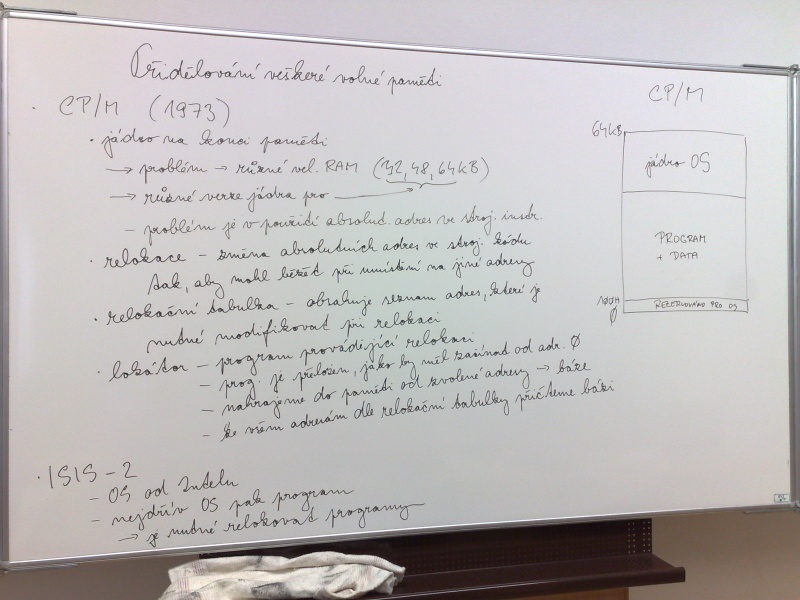 Přidělování veškeré volné paměti
· CP/M (1973)
· jádro na konci paměti
→ problém → různé vel. RAM (32, 48, 64kB)
→ různé verze jádra pro
- problém je v použití absolut. adres ve stroj. instr.
· relokace - změna absolutních adres ve stroj. kódu
tak, aby mohl běžet při umístění na jiné adresy
· relokační tabulka - obsahuje seznam adres, které je
nutné modifikovat při relokaci
· lokátor - program provádějící relokaci
- prog. je přeložen, jako by měl začínat od adr. 0
- nahrajeme do paměti od zvolené adresy → báze
- ke všem adresám dle relokační tabulky přičteme bázi
· ISIS-2
- OS od Intelu
- nejdřív OS pak program
→ je nutné relokovat programy
CP/M
64kB
jádro OS
PROGRAM
+ DATA
100H
REZERVOVÁNO PRO OS
0